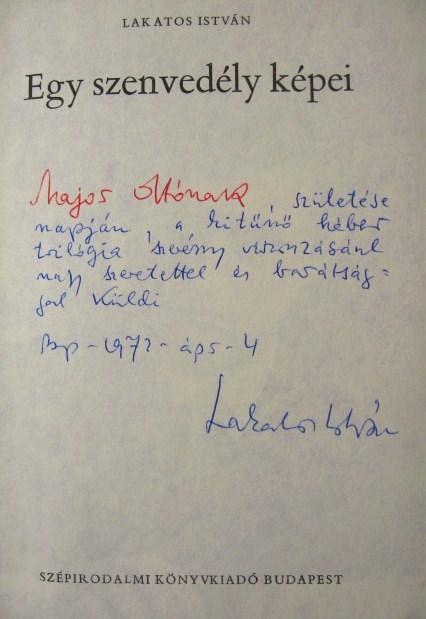 LAKATOS ISTVÁN
Egy szenvedély képei
Major Ottónak, születése
napján, a kitűnő héber
trilógia szerény viszonzásául
nagy szeretettel és barátság=
gal küldi
Bp - 1972 - ápr - 4
Lakatos István
SZÉPIRODALMI KÖNYVKIADÓ BUDAPEST